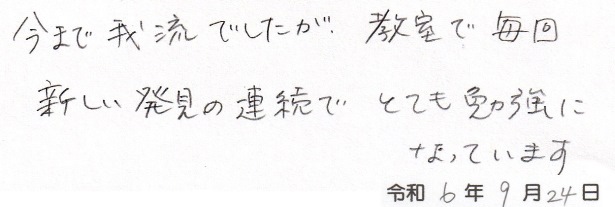 今まで我流でしたが、教室で毎回
新しい発見の連続で とても勉強に
なっています
令和 6 年 9 月 24 日